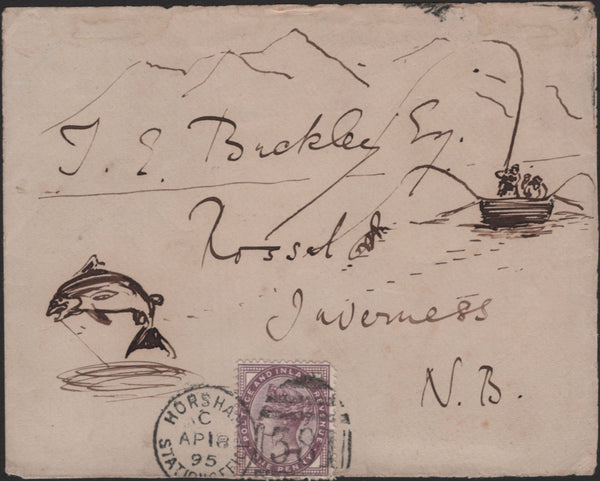 T. E. Buckley Esq.
Rossal
Inverness
N. B.
HORSHA
C
AP 18
95
STATION OFF
POSTAGE AND INLAND REVENUE
ONE PENNY